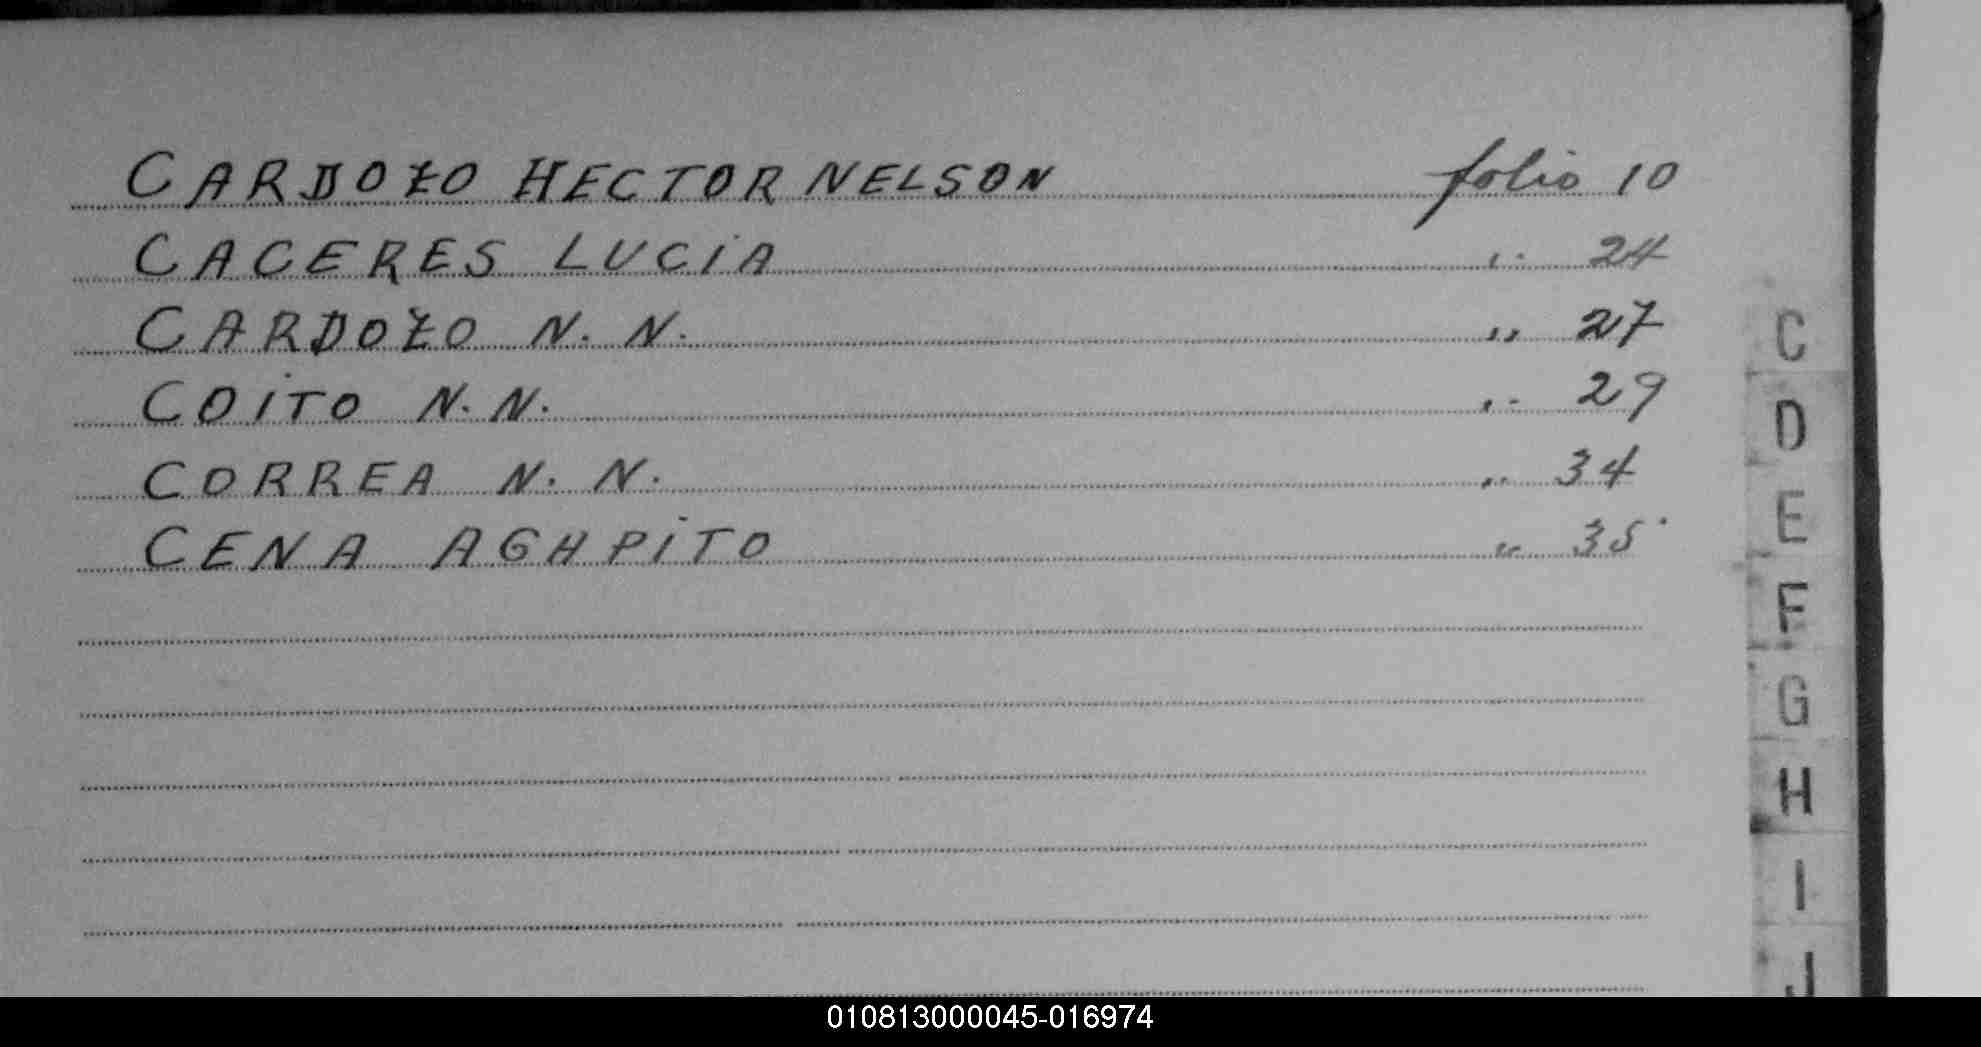 CARDOZO HECTOR NELSON folio 10
CACERES LUCIA " 24
CARDOZO N. N. " 27
COITO N. N. " 29
CORREA N. N. " 34
CENA AGAPITO " 35
C
D
E
F
G
H
I
J
010813000045-016974